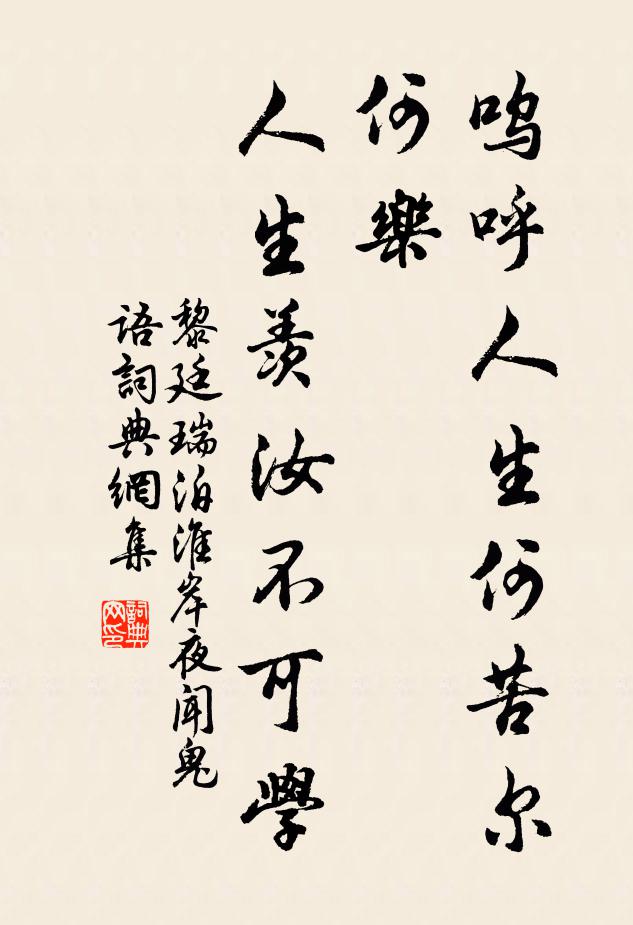 呜呼人生何苦尔
何樂
人生羨汝不可學
黎廷瑞泊淮岸夜聞鬼
語詞典網集
詞典
网印